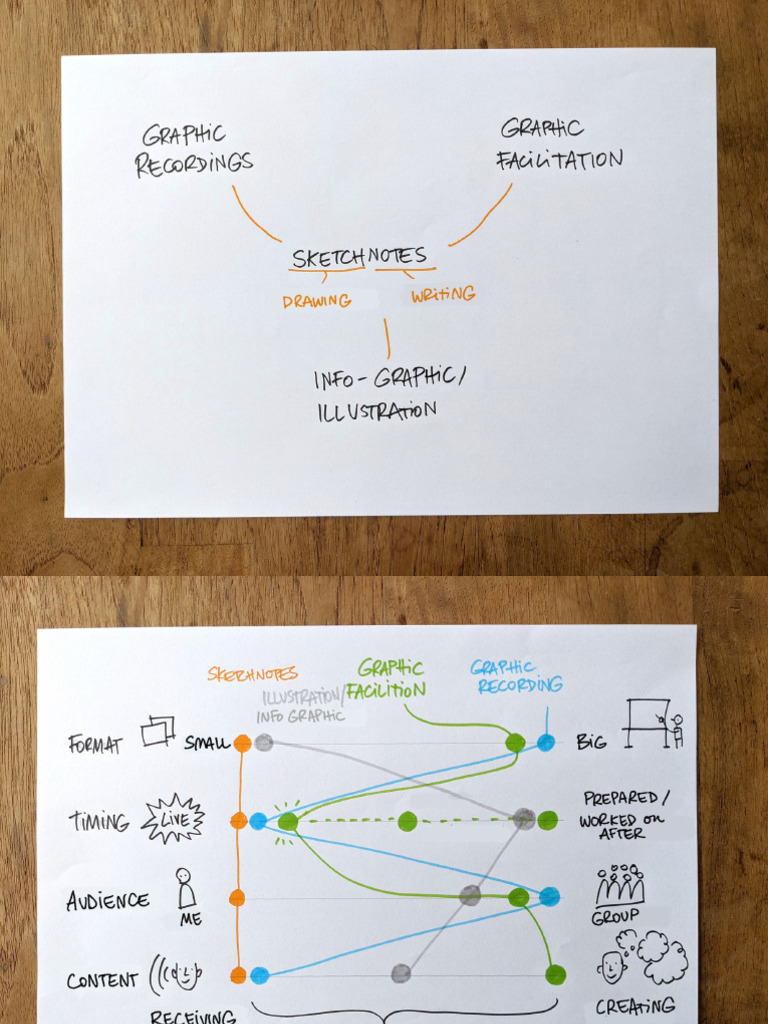 GRAPHIC
RECORDINGS
GRAPHIC
FACILITATION
SKETCHNOTES
DRAWING
WRITING
INFO-GRAPHIC/
ILLUSTRATION
SKETCHNOTES
ILLUSTRATION/
INFO GRAPHIC
GRAPHIC
FACILITION
GRAPHIC
RECORDING
FORMAT
SMALL
BIG
TIMING
LIVE
PREPARED/
WORKED ON
AFTER
AUDIENCE
ME
GROUP
CONTENT
RECEIVING
CREATING